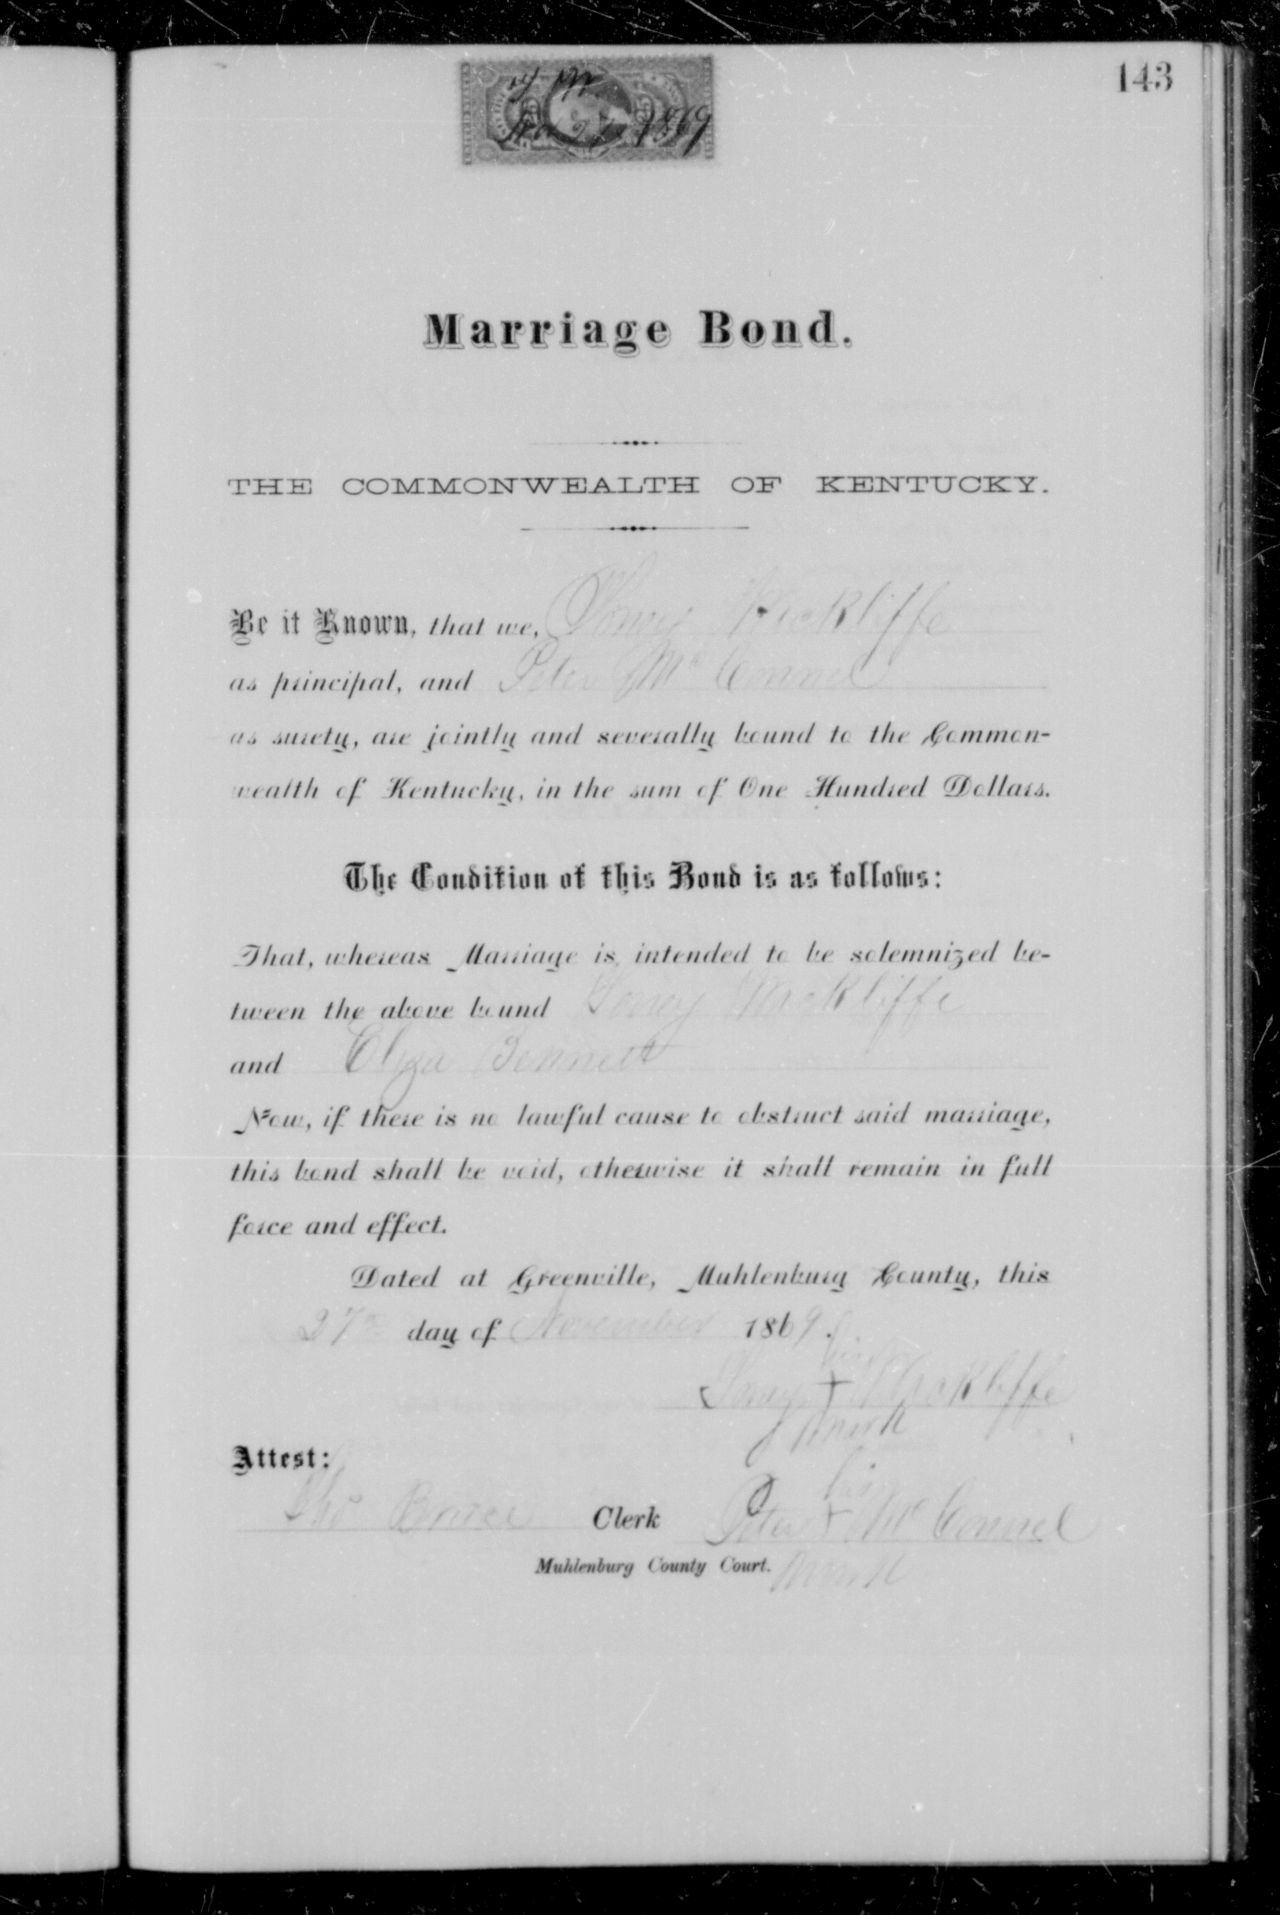 143
Nov 27 1869
Marriage Bond.
THE COMMONWEALTH OF KENTUCKY.
Be it Known, that we, Toney Wickliffe
as principal, and Peter Mc Connel
as surety, are jointly and severally bound to the Common-
wealth of Kentucky, in the sum of One Hundred Dollars.
The Condition of this Bond is as follows:
That, whereas Marriage is intended to be solemnized be-
tween the above bound Toney Wickliffe
and Eliza Bennett
Now, if there is no lawful cause to obstruct said marriage,
this bond shall be void, otherwise it shall remain in full
force and effect.
Dated at Greenville, Muhlenburg County, this
27th day of November 1869.
his
Toney + Wickliffe
mark
Attest:
his
Tho Bruce Clerk Peter + Mc Connel
Muhlenburg County Court. mark